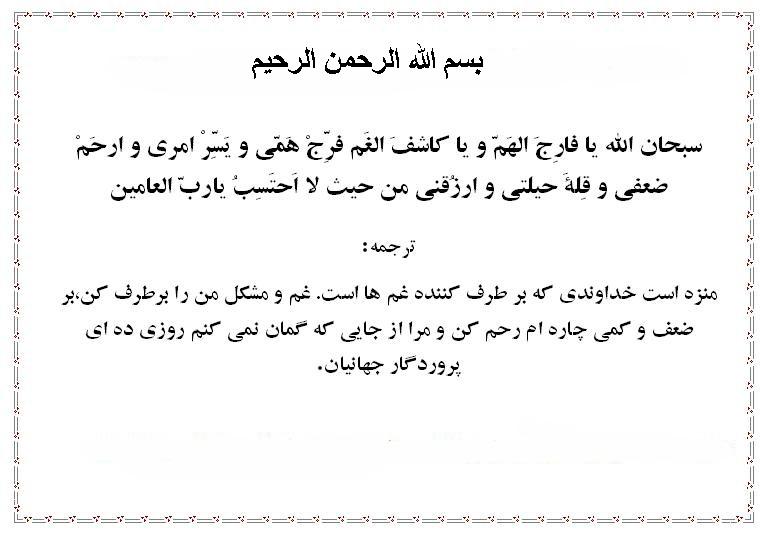 بسم الله الرحمن الرحیم
سبحان الله یا فارِجَ الهَمّ و یا کاشفَ الغَم فرِّجْ هَمّی و یَسِّرْ امری و ارحَمْ
ضعفی و قِلةَ حیلتی و ارزُقنی من حیث لا اَحتَسِبُ یاربّ العامین
ترجمه:
منزه است خداوندی که بر طرف کننده غم ها است. غم و مشکل من را برطرف کن،بر
ضعف و کمی چاره ام رحم کن و مرا از جایی که گمان نمی کنم روزی ده ای
پروردگار جهانیان.